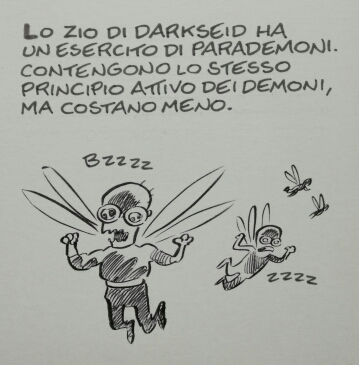 LO ZIO DI DARKSEID HA
UN ESERCITO DI PARADEMONI.
CONTENGONO LO STESSO
PRINCIPIO ATTIVO DEI DEMONI,
MA COSTANO MENO.
BZZZZ
ZZZZ